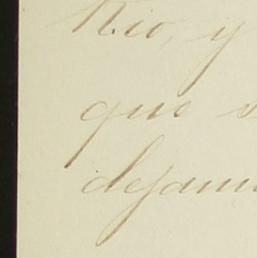 Rio, y
que
dejamo